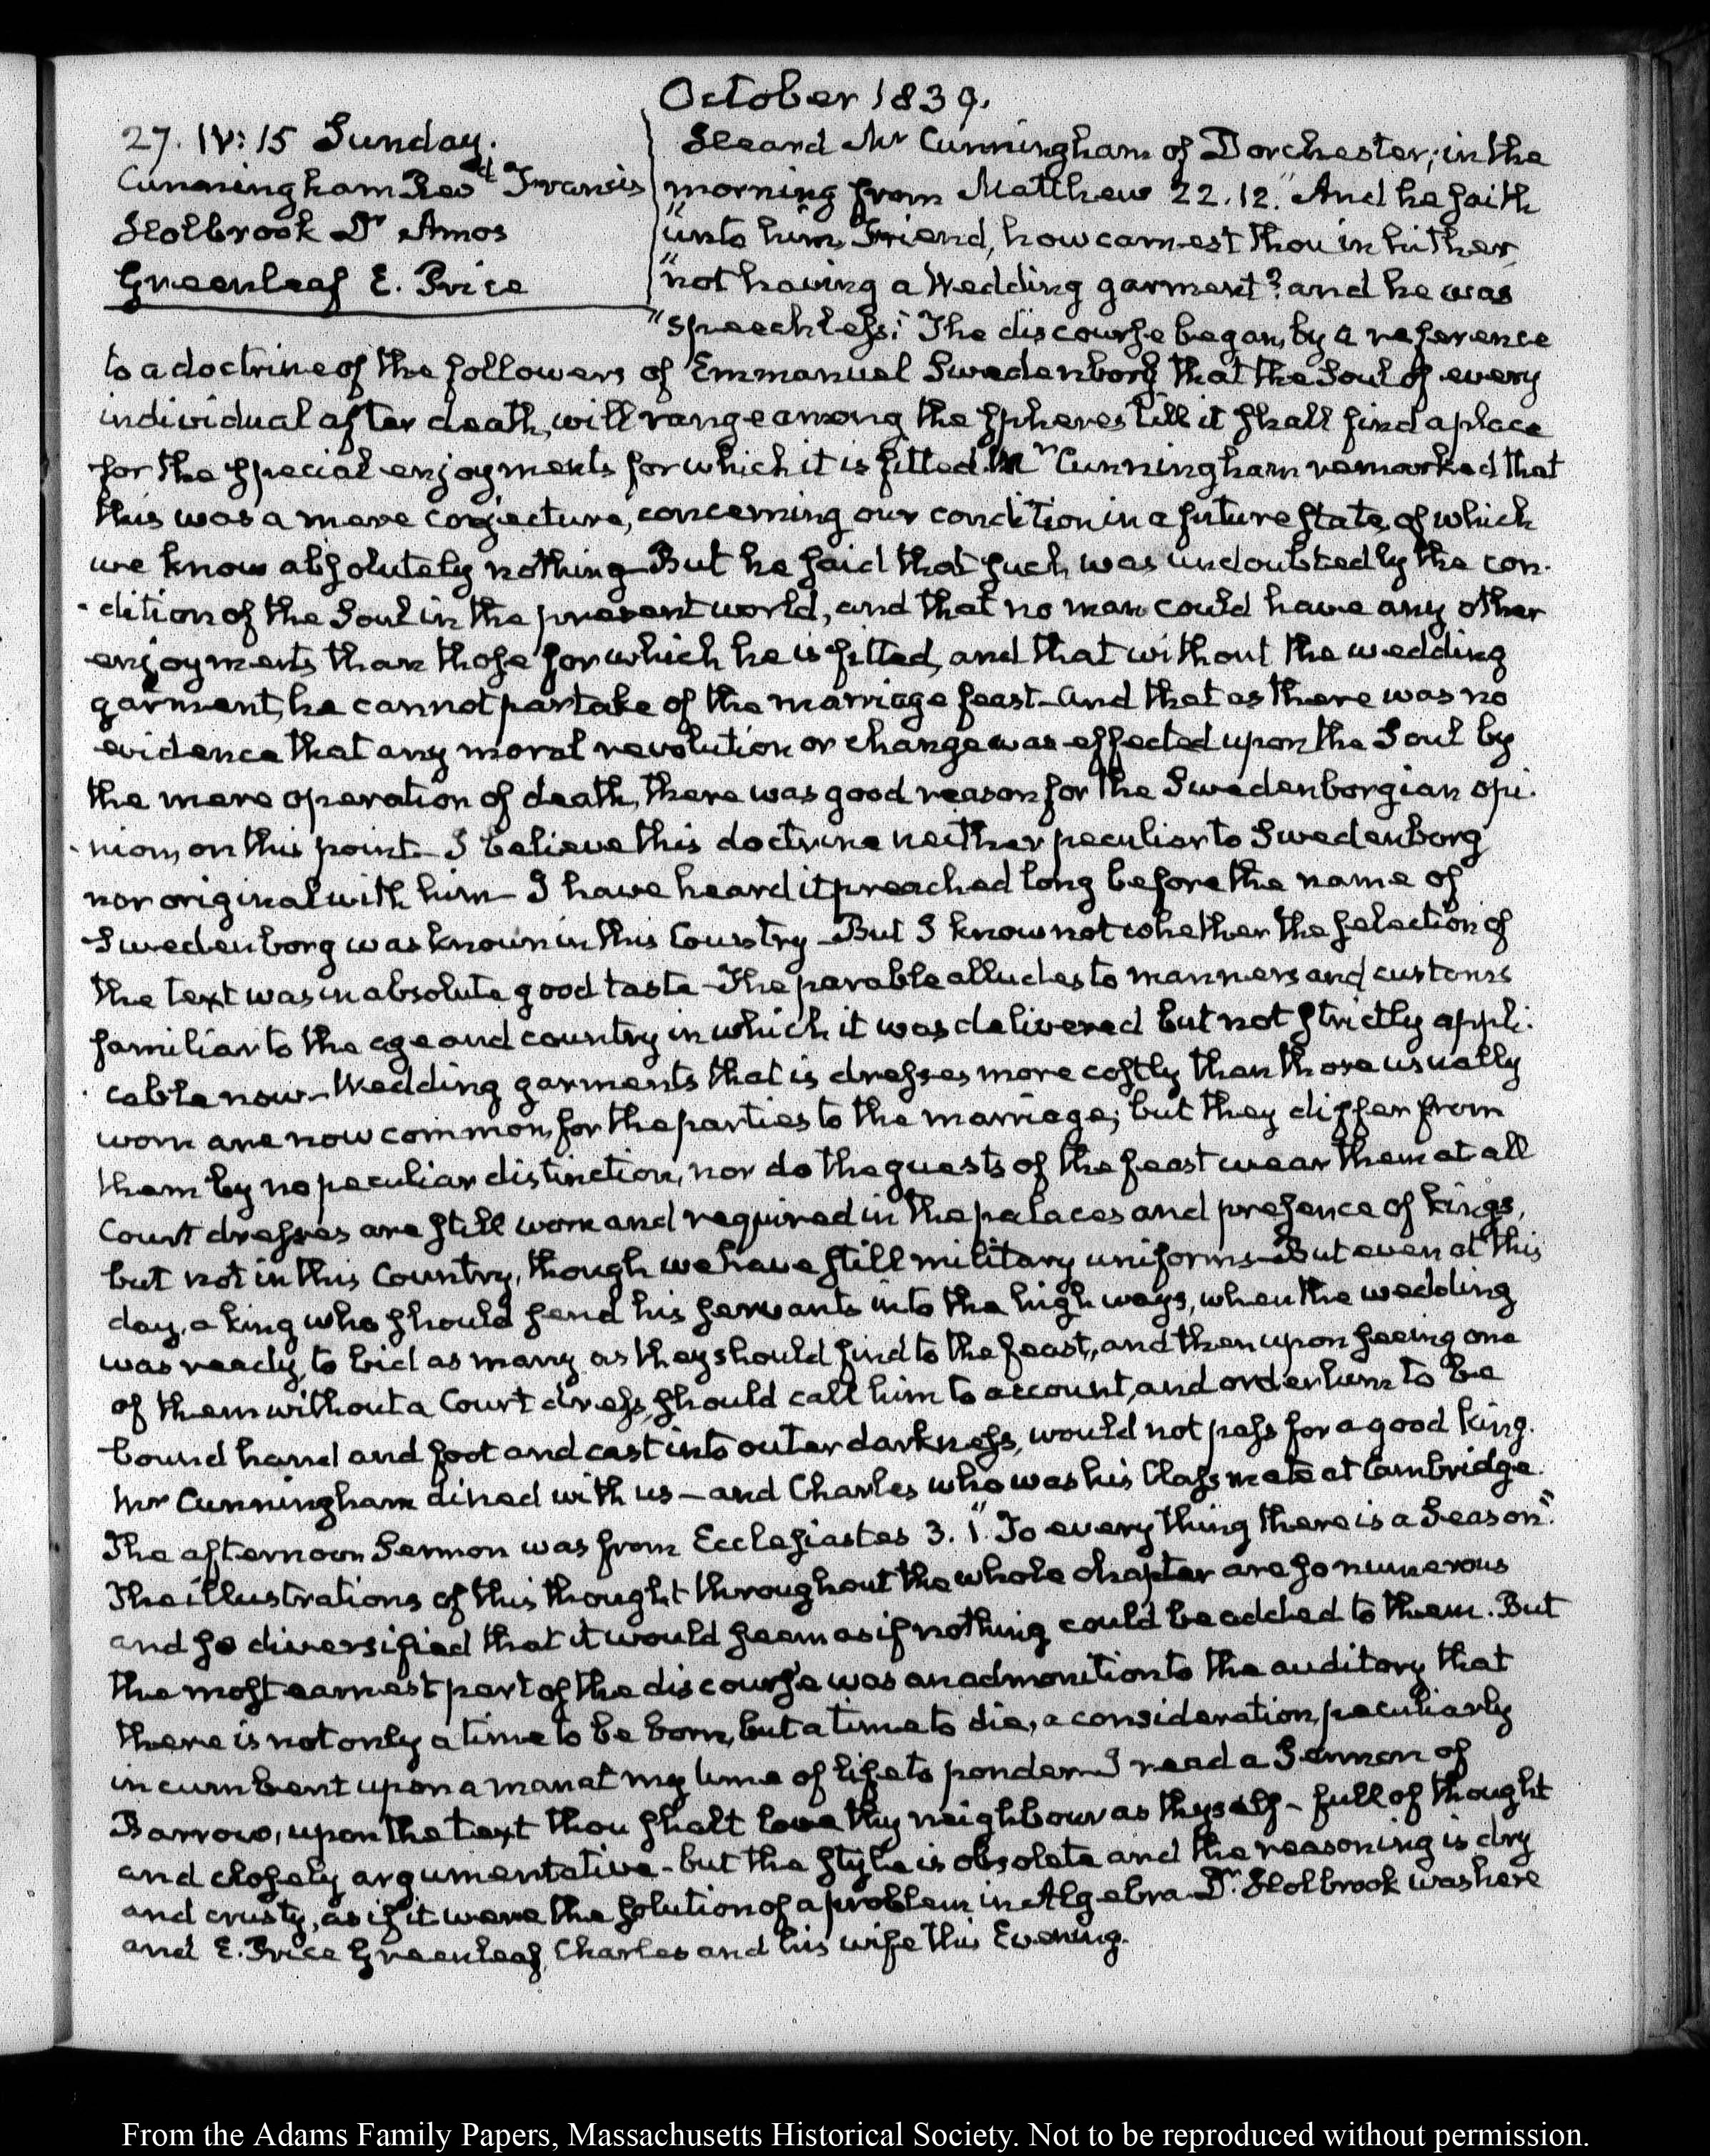 October 1839.
27. IV:15 Sunday.
Cunningham Revd Francis
Holbrook Dr Amos
Greenleaf E. Price
Heard Mr Cunningham of Dorchester; in the
morning from Matthew 22.12. "And he saith
"unto him, Friend, how camest thou in hither,
"not having a Wedding garment? and he was
"speechless." The discourse began, by a reference
to a doctrine of the followers of Emmanuel Swedenborg that the Soul of every
individual after death, will range among the spheres till it shall find a place
for the special enjoyments for which it is fitted. Mr Cunningham remarked that
this was a mere conjecture, concerning our condition in a future state, of which
we know absolutely nothing—But he said that such was undoubtedly the con-
-dition of the Soul in the present world, and that no man could have any other
enjoyments than those for which he is fitted, and that without the wedding
garment, he cannot partake of the marriage feast—And that as there was no
evidence that any moral revolution or change was effected upon the Soul by
the mere operation of death, there was good reason for the Swedenborgian opi-
-nion, on this point—I believe this doctrine neither peculiar to Swedenborg
nor original with him—I have heard it preached long before the name of
Swedenborg was known in this Country—But I know not whether the selection of
the text was in absolute good taste—The parable alludes to manners and customs
familiar to the age and country in which it was delivered but not strictly appli-
-cable now—Wedding garments that is dresses more costly than those usually
worn are now common, for the parties to the marriage; but they differ from
them by no peculiar distinction, nor do the guests of the feast wear them at all
Court dresses are still worn and required in the palaces and presence of kings,
but not in this Country, though we have still military uniforms—But even at this
day, a king who should send his servants into the high ways, when the wedding
was ready, to bid as many as they should find to the feast, and then upon seeing one
of them without a Court dress, should call him to account, and order him to be
bound hand and foot and cast into outer darkness, would not pass for a good king.
Mr Cunningham dined with us—and Charles who was his Classmate at Cambridge.
The afternoon Sermon was from Ecclesiastes 3.1. "To every thing there is a Season."
The illustrations of this thought throughout the whole chapter are so numerous
and so diversified that it would seem as if nothing could be added to them. But
the most earnest part of the discourse was an admonition to the auditory that
there is not only a time to be born, but a time to die, a consideration, peculiarly
incumbent upon a man at my time of life to ponder—I read a Sermon of
Barrow, upon the text thou shalt love thy neighbour as thyself—full of thought
and closely argumentative—but the style is obsolete and the reasoning is dry
and crusty, as if it were the solution of a problem in Algebra—Dr. Holbrook was here
and E. Price Greenleaf, Charles and his wife this Evening.
From the Adams Family Papers, Massachusetts Historical Society. Not to be reproduced without permission.